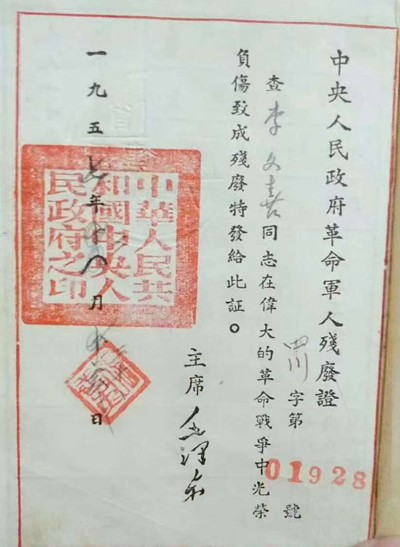 中央人民政府革命軍人殘廢證
四川字第01928號
查李文喜同志在偉大的革命戰爭中光榮
負傷致成殘廢特發給此証。
主席 毛澤东
一九五年月日
中華人民共
和國中央人
民政府之印